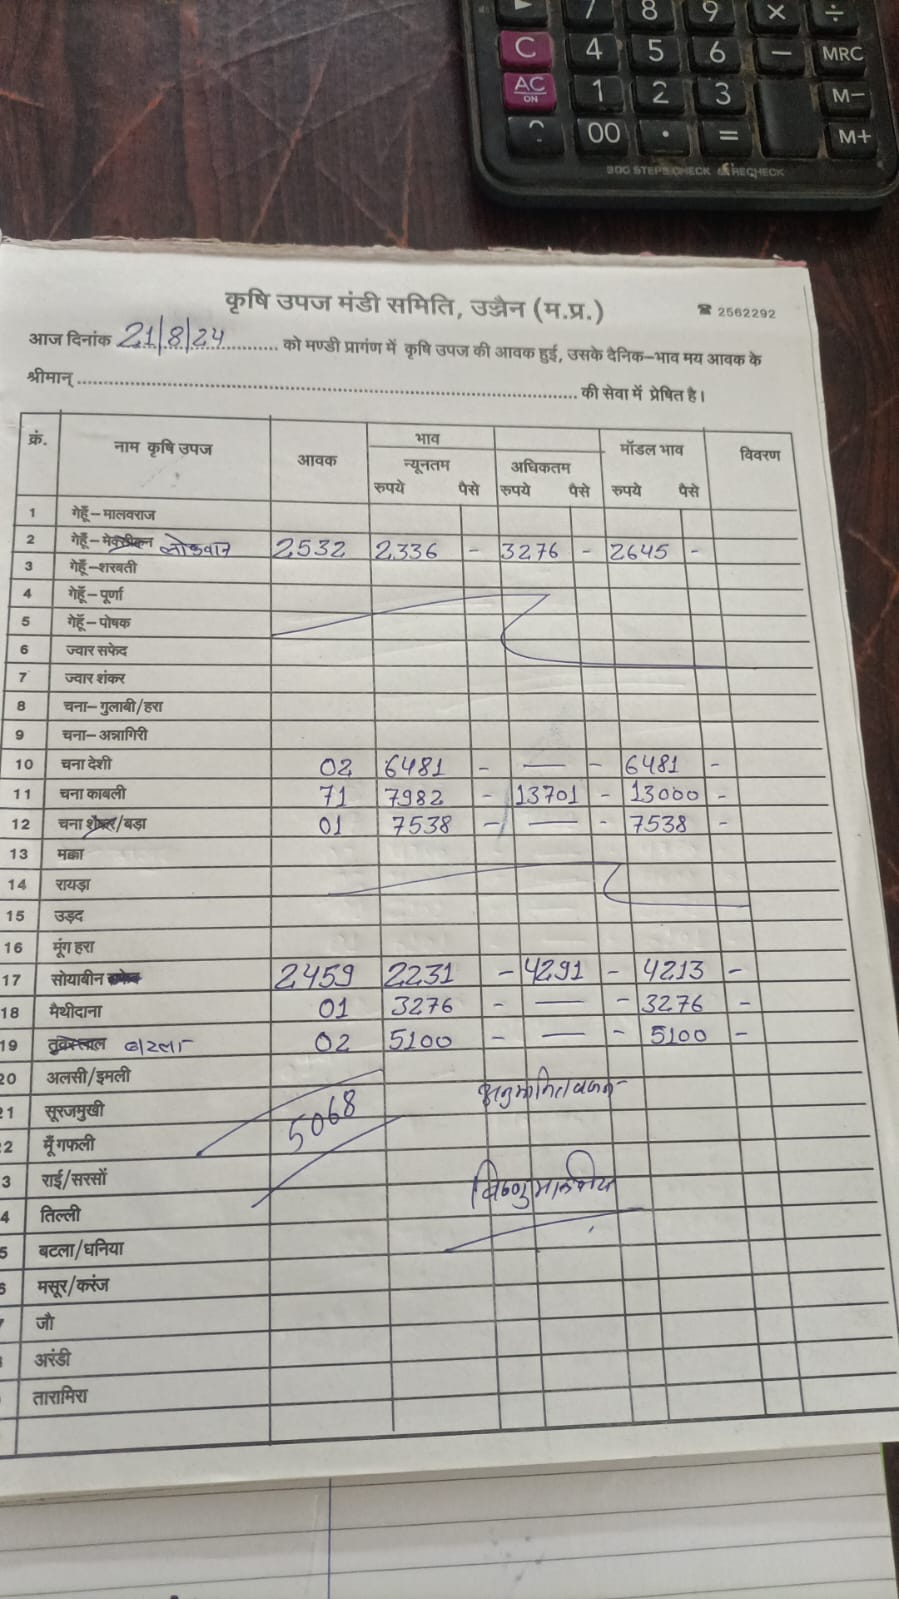 7 8 9 × ÷
C 4 5 6 − MRC
AC ON 1 2 3 M−
00 · = M+
STEPS CHECK RECHECK
कृषि उपज मंडी समिति, उज्जैन (म.प्र.) ☎ 2562292
आज दिनांक 21/8/24 को मण्डी प्रागंण में कृषि उपज की आवक हुई, उसके दैनिक-भाव मय आवक के
श्रीमान् की सेवा में प्रेषित है।
क्रं. नाम कृषि उपज आवक भाव मॉडल भाव विवरण
न्यूनतम अधिकतम
रुपये पैसे रुपये पैसे रुपये पैसे
1 गेहूँ-मालवराज
2 गेहूँ-मेक्सीकन लोकवान 2532 2336 - 3276 - 2645 -
3 गेहूँ-शरबती
4 गेहूँ-पूर्णा
5 गेहूँ-पोषक
6 ज्वार सफेद
7 ज्वार शंकर
8 चना-गुलाबी/हरा
9 चना-अन्नागिरी
10 चना देशी 02 6481 - — - 6481 -
11 चना काबली 71 7982 - 13701 - 13000 -
12 चना /बड़ा 01 7538 - — - 7538 -
13 मक्का
14 रायड़ा
15 उड़द
16 मूंग हरा
17 सोयाबीन 2459 2231 - 4291 - 4213 -
18 मैथीदाना 01 3276 - — - 3276 -
19 बटला 02 5100 - — - 5100 -
20 अलसी/इमली
21 सूरजमुखी 5068 अनुमानित वजन
2 मूँगफली
3 राई/सरसों
4 तिल्ली विष्णु मालवीय
5 बटला/धनिया
6 मसूर/करंज
जौ
अरंडी
तारामिरा